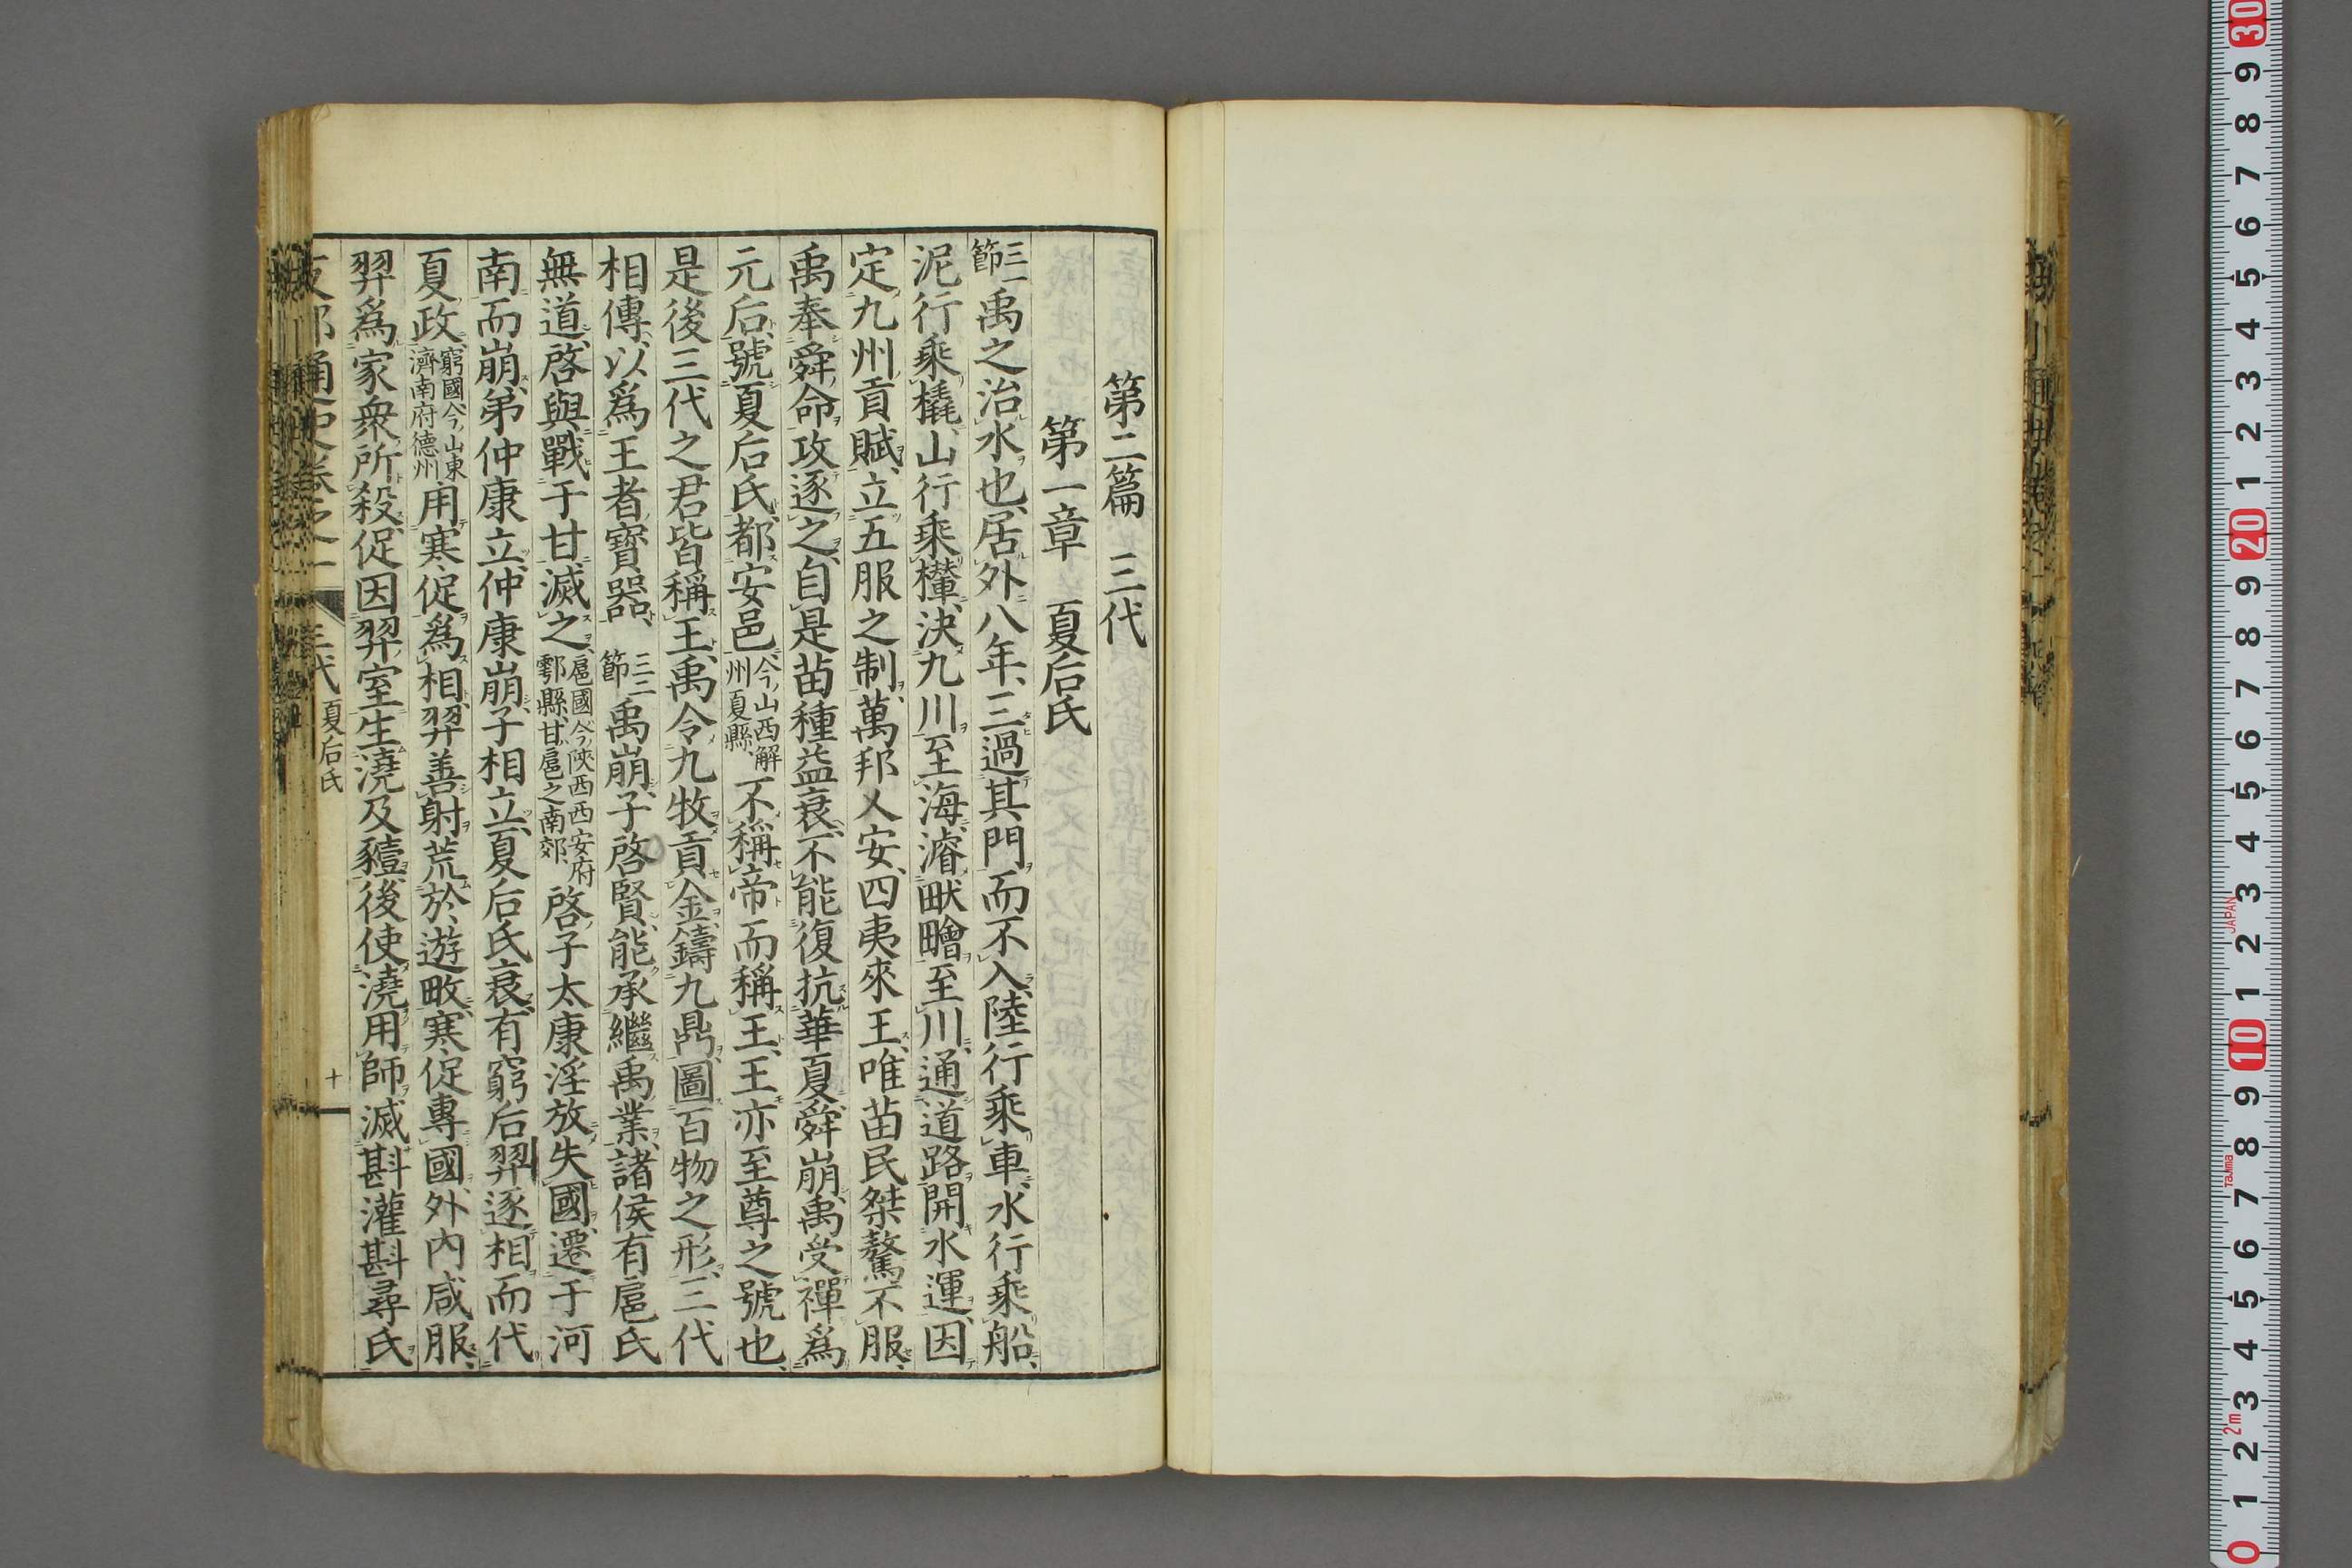 第二篇 三代
第一章 夏后氏
三一節 禹之治水也、居外八年、三過其門、而不入、陸行乘車、水行乘船、
泥行乘橇、山行乘樏、決九川至海、濬畎澮至川、通道路開水運、因
定九州貢賦、立五服之制、萬邦乂安、四夷來王、唯苗民桀驁不服、
禹奉舜命攻逐之、自是苗種益衰、不能復抗華夏、舜崩、禹受禪爲
元后、號夏后氏、都安邑、今ノ山西解州夏縣、不稱帝而稱王、王亦至尊之號也、
是後三代之君皆稱王、禹令九牧貢金、鑄九鼎、圖百物之形、三代
相傳、以爲王者寶器、三二節 禹崩、子啓賢、能承繼禹業、諸侯有扈氏
無道、啓與戰于甘、滅之、扈國今ノ陝西西安府鄠縣、甘、扈之南郊、啓子太康淫放失國、遷于河
南而崩、弟仲康立、仲康崩、子相立、夏后氏衰、有窮后羿逐相而代
夏政、窮國、今ノ山東濟南府德州 用寒促爲相、羿善射、荒於遊畋、寒促專國、外內咸服、
羿爲家衆所殺、促因羿室、生澆及豷、後使澆用師滅斟灌斟尋氏
支那通史卷之一 三代 夏后氏 十
30
9
8
7
6
5
4
3
2
1
20
9
8
7
6
5
4
3
JAPAN
2
1
10
9
8
Tajima
7
6
5
4
3
2m
2
1
0